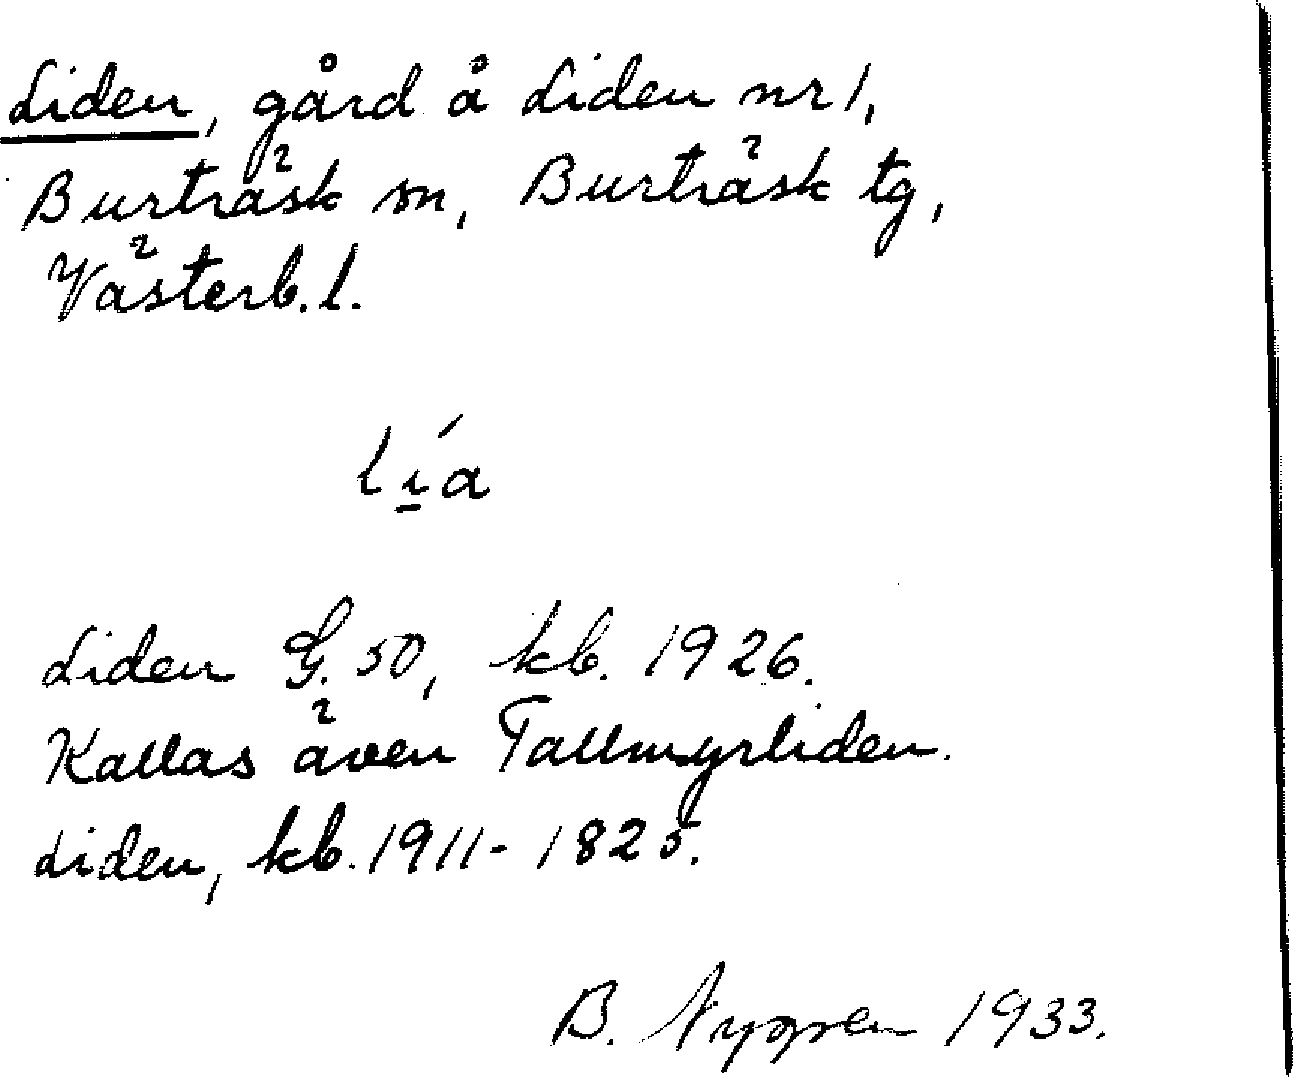 Liden, gård å Liden nr 1,
Burträsk sn, Burträsk tg,
Västerb. l.
lị́a
Liden G. 50, kb. 1926.
Kallas även Tallmyrliden.
Liden, kb. 1911-1825.
B. Nygren 1933.